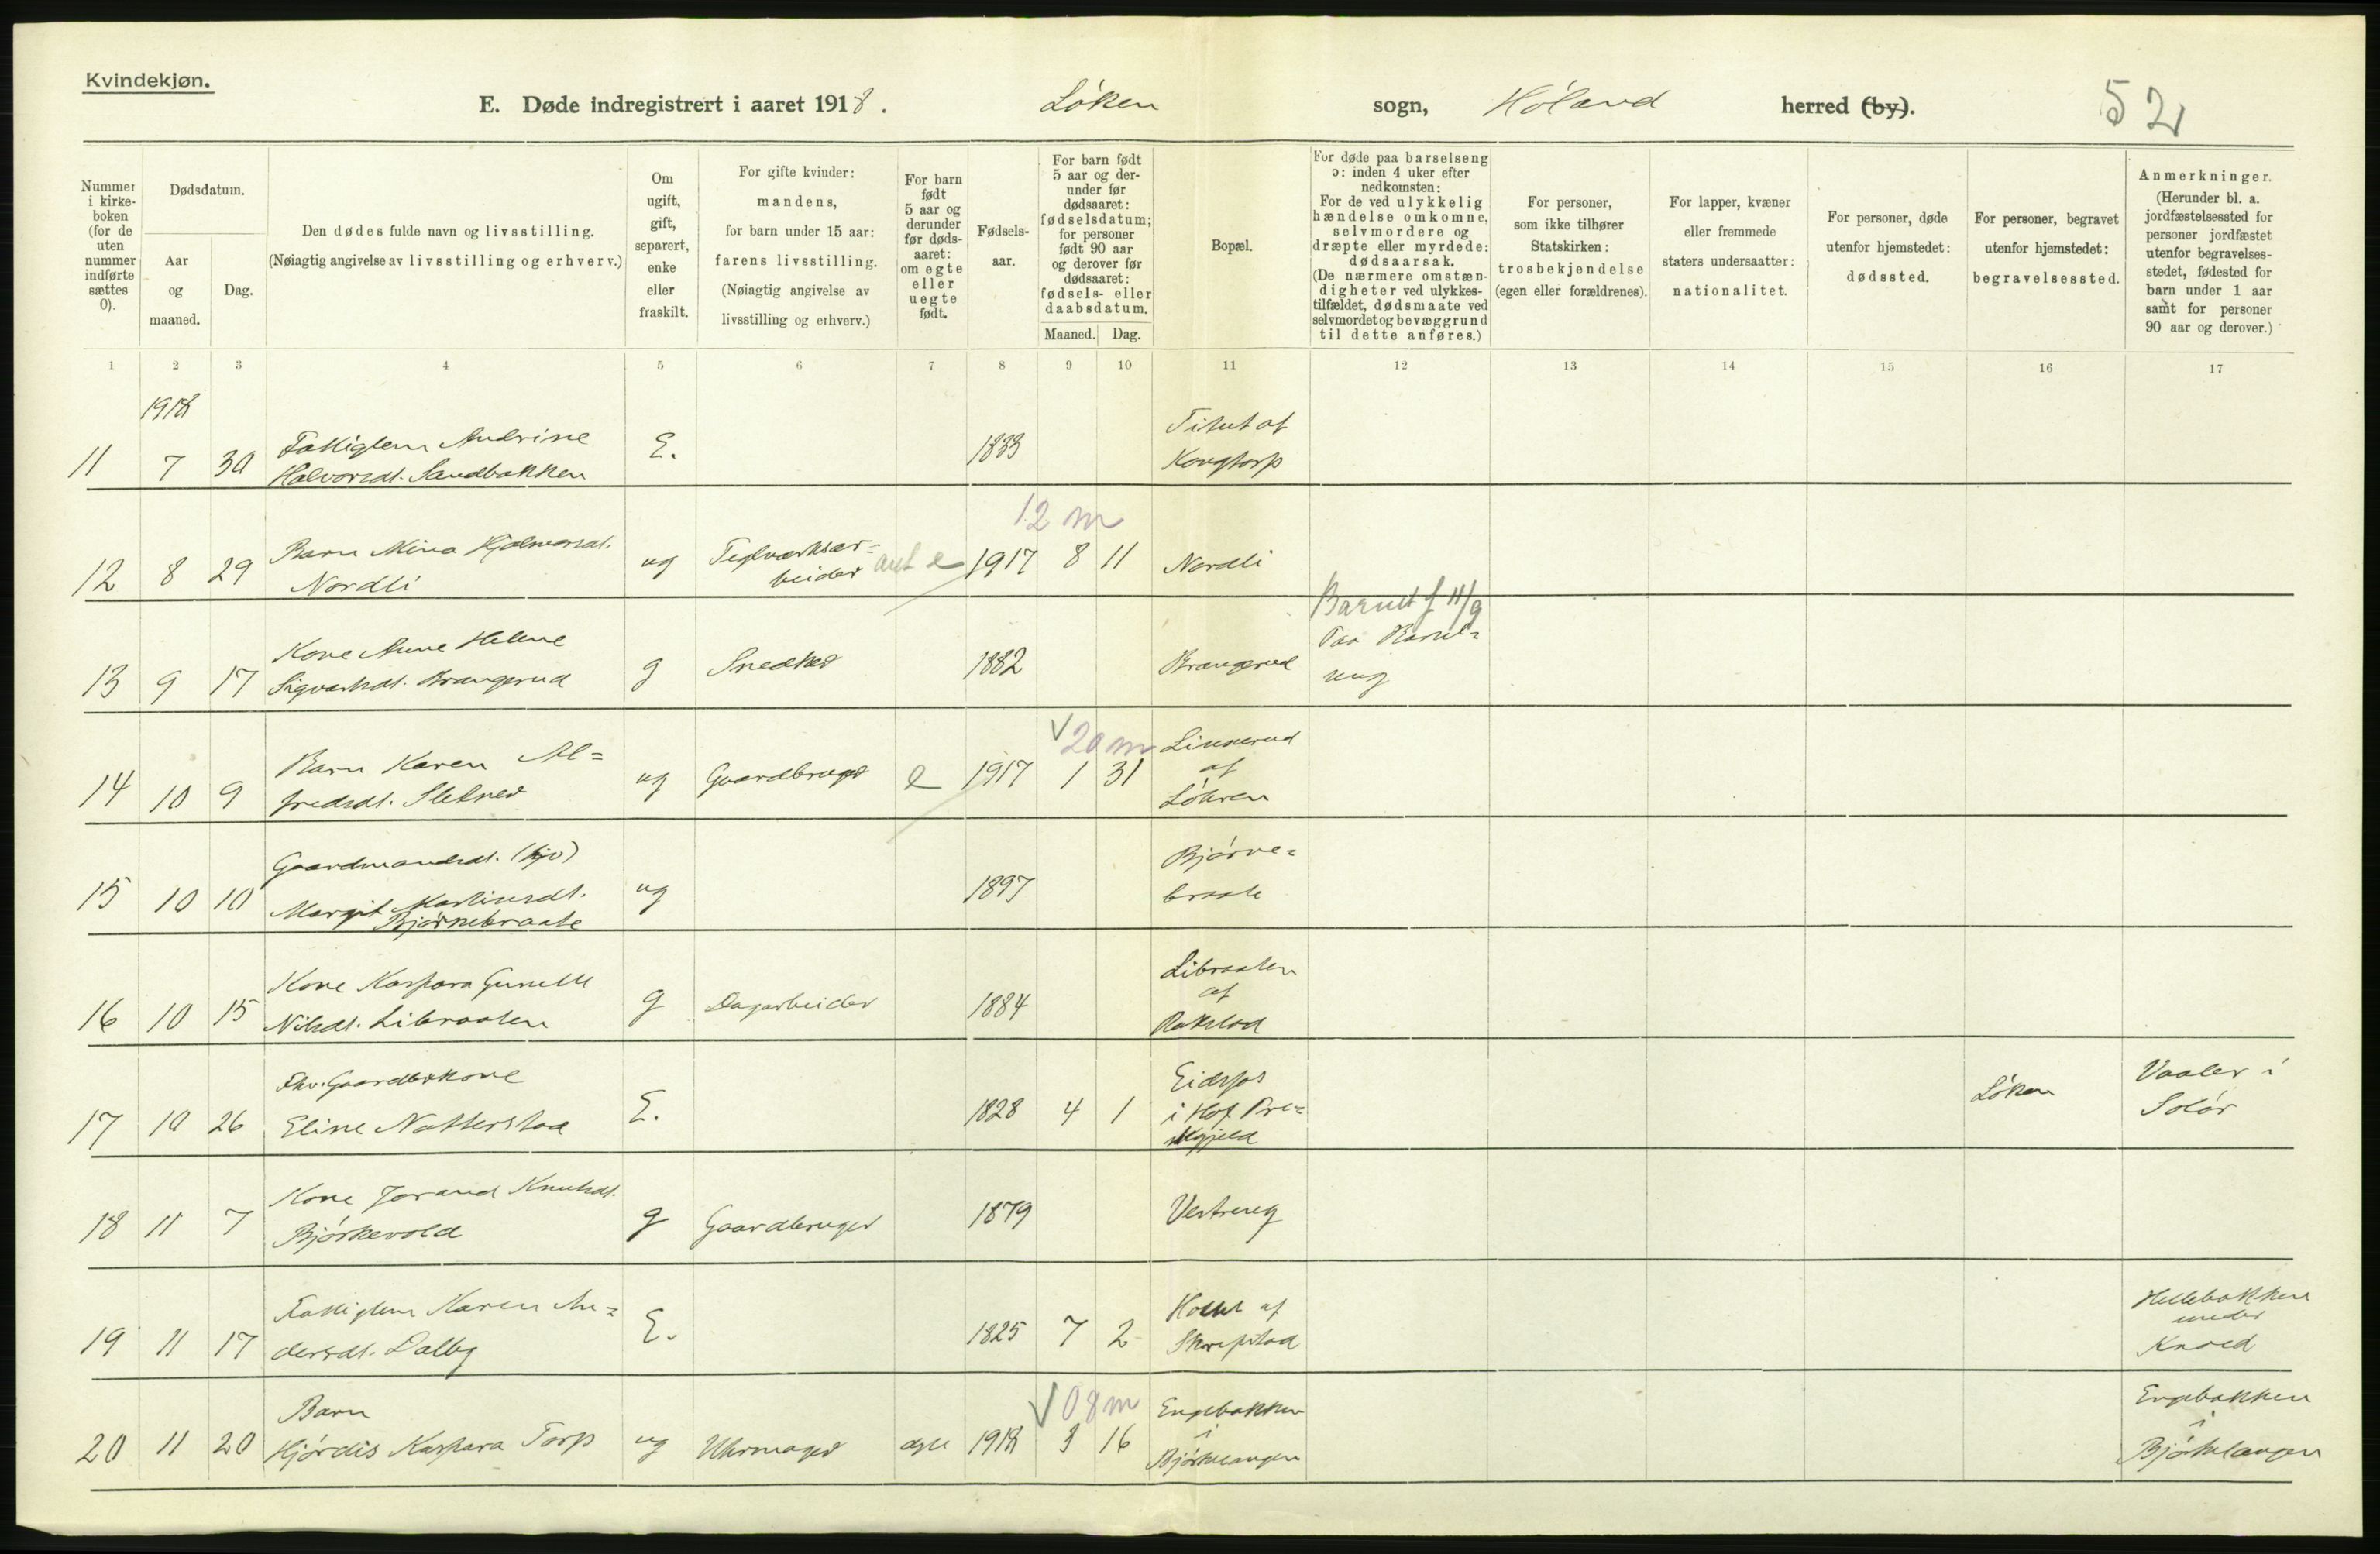 Kvindekjøn.
E. Døde indregistrert i aaret 1918. Løken sogn, Høland herred (by).
52
Nummer i kirkeboken (for de uten nummer indførte sættes 0).
Dødsdatum.
Aar og maaned.
Dag.
Den dødes fulde navn og livsstilling.
(Nøiagtig angivelse av livsstilling og erhverv.)
Om ugift, gift, separert, enke eller fraskilt.
For gifte kvinder: mandens, for barn under 15 aar: farens livsstilling. (Nøiagtig angivelse av livsstilling og erhverv.)
For barn født 5 aar og derunder før dødsaaret: om egte eller uegte født.
Fødselsaar.
For barn født 5 aar og derunder før dødsaaret: fødselsdatum; for personer født 90 aar og derover før dødsaaret: fødsels- eller daabsdatum.
Maaned. Dag.
Bopæl.
For døde paa barselseng ɔ: inden 4 uker efter nedkomsten: For de ved ulykkelig hændelse omkomne, selvmordere og dræpte eller myrdede: dødsaarsak. (De nærmere omstændigheter ved ulykkestilfældet, dødsmaate ved selvmordet og bevæggrund til dette anføres.)
For personer, som ikke tilhører Statskirken: trosbekjendelse (egen eller forældrenes).
For lapper, kvæner eller fremmede staters undersaatter: nationalitet.
For personer, døde utenfor hjemstedet: dødssted.
For personer, begravet utenfor hjemstedet: begravelsessted.
Anmerkninger. (Herunder bl. a. jordfæstelsessted for personer jordfæstet utenfor begravelsesstedet, fødested for barn under 1 aar samt for personer 90 aar og derover.)
1 2 3 4 5 6 7 8 9 10 11 12 13 14 15 16 17
1918
11 7 30 Fattiglem Andrine Halvorsdt. Sandbakken E. 1833 Kongtorp
12 m
12 8 29 Barn Mina Hjalmarsdt. Nordli ug Teglverksarbeider ant e 1917 8 11 Nordli
Barnet f 11/9
13 9 17 Kone Anne Helene Sigvartsdt. Brangerud g Snedker 1882 Brangerud Paa Barselseng
V 20 m
14 10 9 Barn Karen Alfredsdt. Sletner ug Gaardbruger e 1917 1 31 Linnerud af Løkren
15 10 10 Gaardmandsdt. Margit Martinsdt. Bjørnebraate ug 1897 Bjørnebraate
16 10 15 Kone Kaspara Gunelle Nilsdt. Libraaten g Dagarbeider 1884 Libraaten af Rakstad
17 10 26 Fhv. Gaardbrkone Eline Natterstad E. 1828 4 1 Eidsfos i Hof Præstegjeld Løken Vaaler i Solør
18 11 7 Kone Jorand Knutsdt. Bjørkevold g Gaardbruger 1879 Vestreng
19 11 17 Fattiglem Karen Andersdt. Dalby E. 1825 7 2 af Skrepstad Hellebakken under Knold
V 08 m
20 11 20 Barn Hjørdis Kaspara Torp ug Uhrmager egte 1918 3 16 Engebakken i Bjørkelangen Engebakken i Bjørkelangen